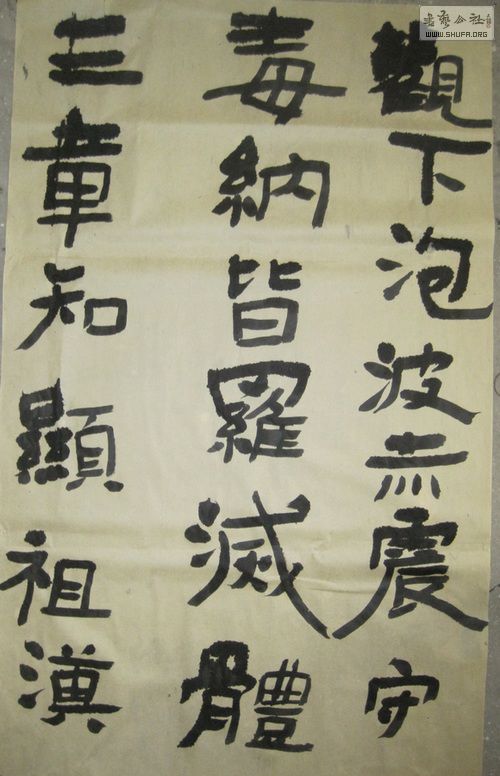 觀下泡波亦震守
毒納皆羅滅體
章知顯祖漢
书艺公社
WWW.SHUFA.ORG